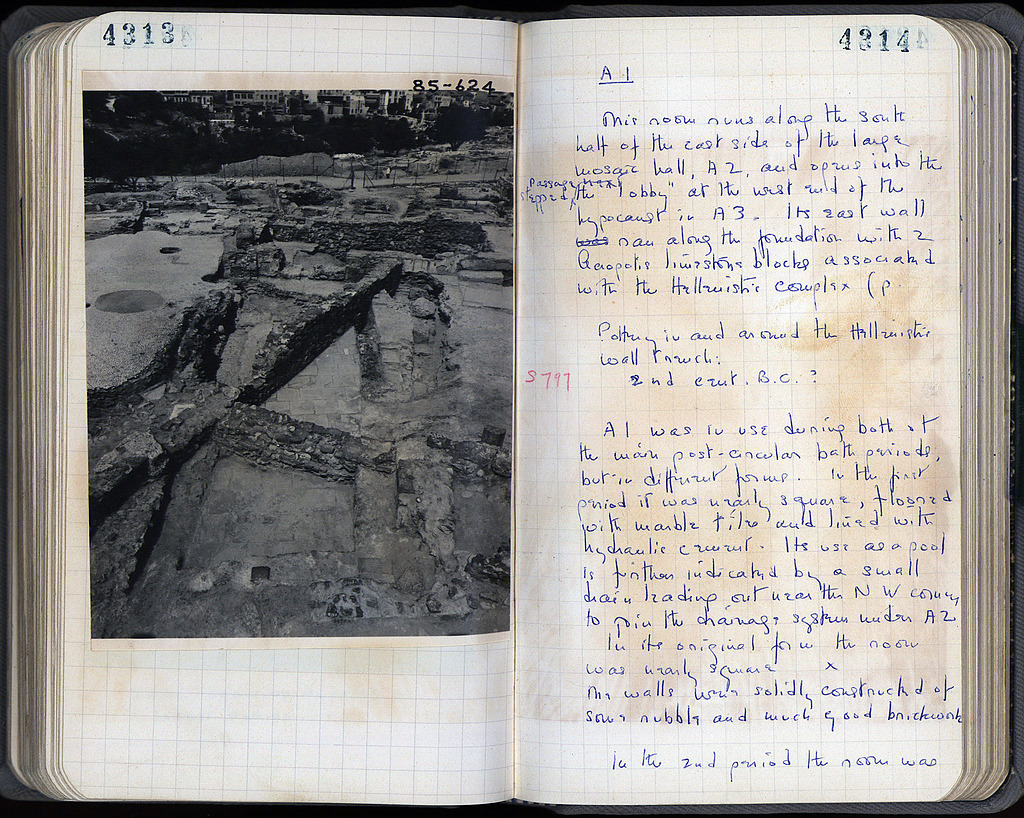 4313
85-624
4314
A 1
This room runs along the south
half of the east side of the large
mosaic hall, A 2, and opens into the
passage next
stepped, the "lobby" at the west end of the
hypocaust in A 3. Its east wall
was ran along the foundation with 2
Acropolis limestone blocks associated
with the Hellenistic complex (p.
Pottery in and around the Hellenistic
wall trench:
S 797
2nd cent. B.C. ?
A 1 was in use during both of
the main post-circular bath periods,
but in different forms. In the first
period it was nearly square, floored
with marble tiles and lined with
hydraulic cement. Its use as a pool
is further indicated by a small
drain leading out near the N W corner,
to join the drainage system under A 2.
In its original form the room
was nearly square x
The walls were solidly constructed of
some rubble and much good brickwork
In the 2nd period the room was